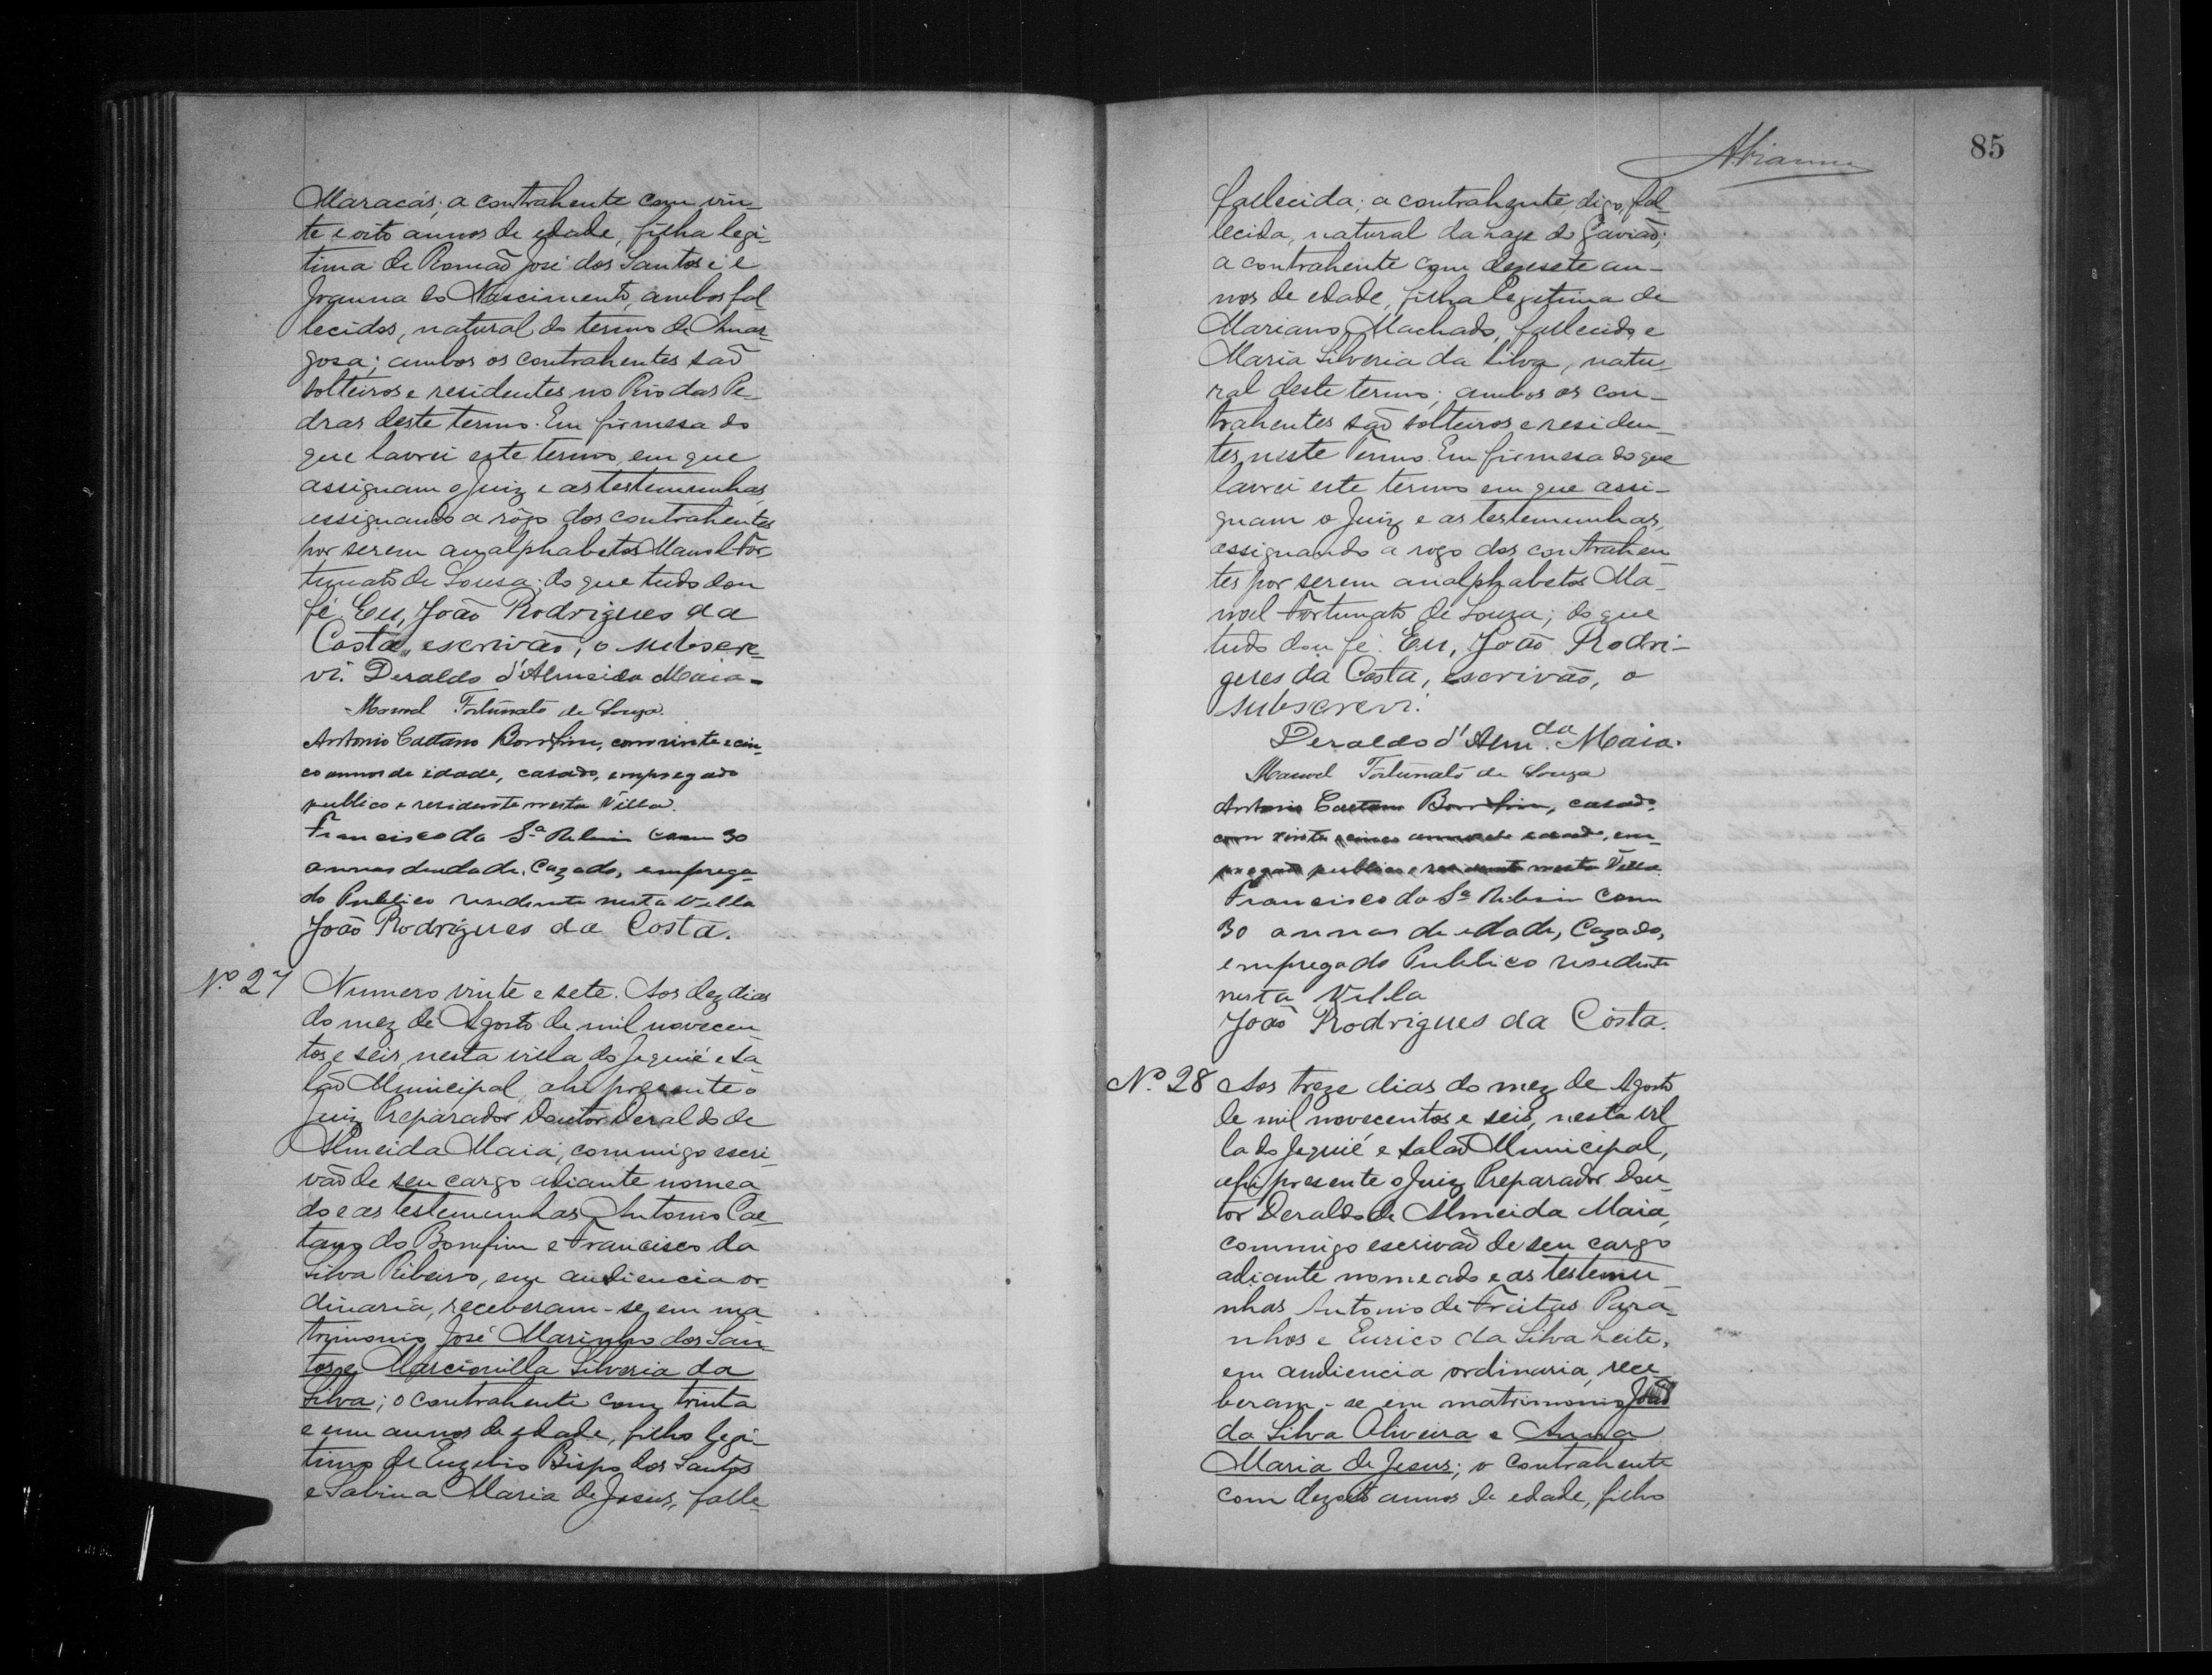 Maracás; a contrahente com vin-
te e oito annos de edade, filha legi-
tima de Romaõ José dos Santos e
Joanna do Nascimento, ambos fal-
lecidos, natural do termo de Amar-
gosa; ambos os contrahentes saõ
solteiros e residentes no Rio das Pe-
dras deste termo. Em firmesa do
que lavrei este termo, em que
assignam o Juiz e as testemunhas,
assignando a rôgo dos contrahentes
por serem analphabetos Manoel For-
tunato de Sousa; do que tudo dou
fé. Eu, João Rodrigues da
Costa, escrivão, o subscre-
vi. Deraldo d'Almeida Maia-
Manoel Fortunato de Souza.
Antonio Caetano Bomfim, com vinte e cin-
co annos de idade, casado, empregado
publico e residente nesta Villa.
Francisco da Sª Ribeiro com 30
annos deidade, Cazado, emprega-
do Publico residente nesta Villa
João Rodrigues da Costa.
Nº 27 Numero vinte e sete. Aos dez dias
do mez de Agosto de mil novecen-
tos e seis, nesta villa do Jequié e sa-
laõ Municipal, ahi presente o
Juiz Preparador Doutor Deraldo de
Almeida Maia, commigo escri-
vaõ de seu cargo adiante nomea-
do e as testemunhas Antonio Cae-
tano do Bomfim e Francisco da
Silva Ribeiro, em audiencia or-
dinaria, receberam-se em ma-
trimonio José Marinho dos San-
tos e Marcionilla Silveria da
Silva; o contrahente com trinta
e um annos de edade, filho legi-
timo de Euzebio Bispo dos Santos
e Sabina Maria de Jesus, falle-
85
fallecida; a contrahente, digo, fal-
lecida, natural da Lage do Gaviaõ;
a contrahente com dezesete an-
nos de edade, filha legitima de
Mariano Machado, fallecido e
Maria Silveria da Silva, natu-
ral deste termo; ambos os con-
trahentes saõ solteiros e residen-
tes neste Termo. Em firmesa do que
lavrei este termo em que assi-
gnam o Juiz e as testemunhas,
assignando a rogo dos contrahen-
tes por serem analphabetos Ma-
noel Fortunato de Souza; do que
tudo dou fé. Eu, João Rodri-
gues da Costa, escrivão, o
subscrevi.
Deraldo d'Alm.da Maia.
Manoel Fortunato de Souza
Antonio Caetano Bomfim, casado,
com vinte e cinco annos de edade, em-
pregado publico e residente nesta Villa.
Francisco da Sª Ribeiro com
30 annos de edade, Cazado,
empregado Publico residente
nesta Villa
João Rodrigues da Costa.
Nº 28 Aos treze dias do mez de Agosto
de mil novecentos e seis, nesta vil-
la do Jequié e salaõ Municipal,
ahi presente o Juiz Preparador Dou-
tor Deraldo de Almeida Maia,
commigo escrivaõ de seu cargo
adiante nomeado e as testemu-
nhas Antonio de Freitas Para-
nhos e Eurico da Silva Leite,
em audiencia ordinaria, rece-
beram-se em matrimonio João
da Silva Oliveira e Anna
Maria de Jesus; o contrahente
com dezoito annos de edade, filho